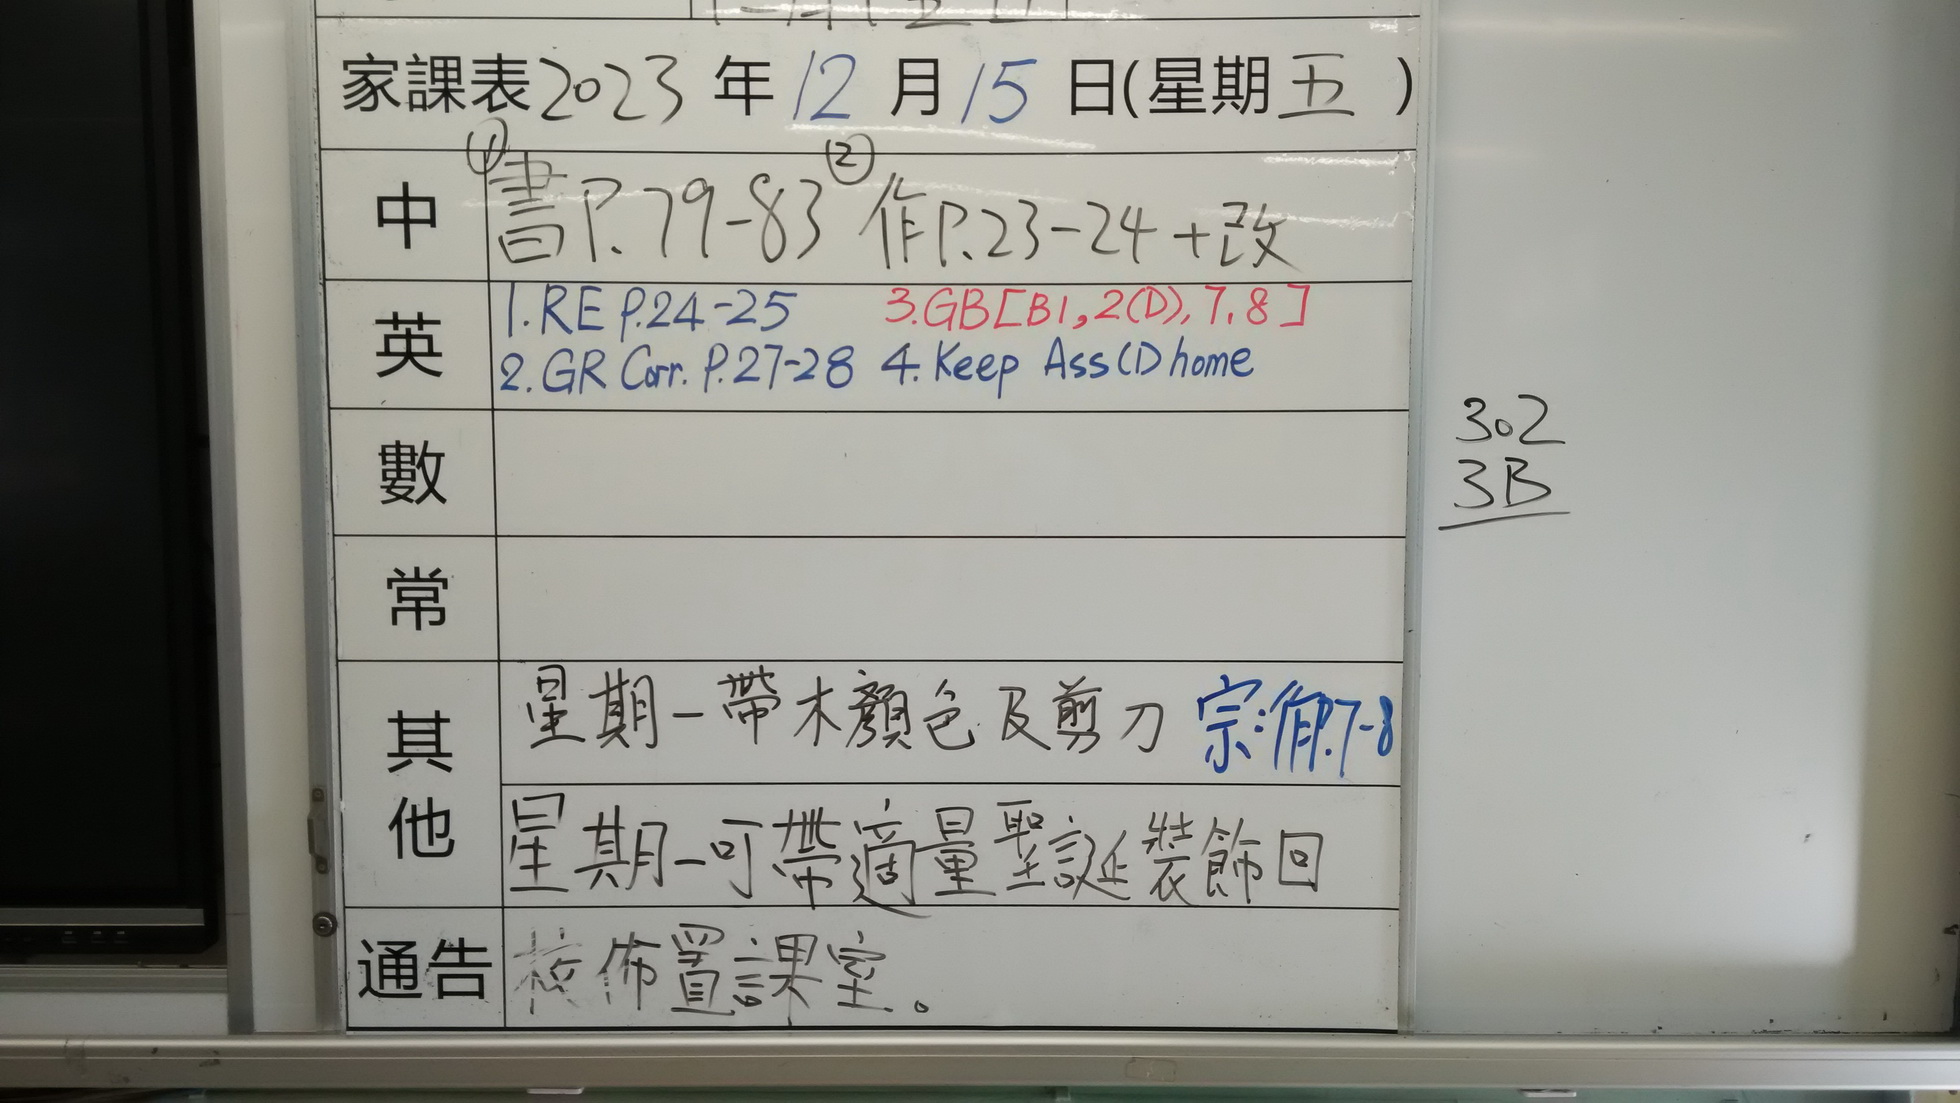 家課表2023年12月15日(星期五)
中 ①書P.79-83 ②作P.23-24+改
英 1.RE P.24-25 3.GB[B1,2(D),7,8]
2.GR Corr. P.27-28 4.Keep Ass(1) home
數
常
其他 星期一帶木顏色及剪刀 宗:作P.7-8
星期一可帶適量聖誕裝飾回
通告 校佈置課室。
302
3B